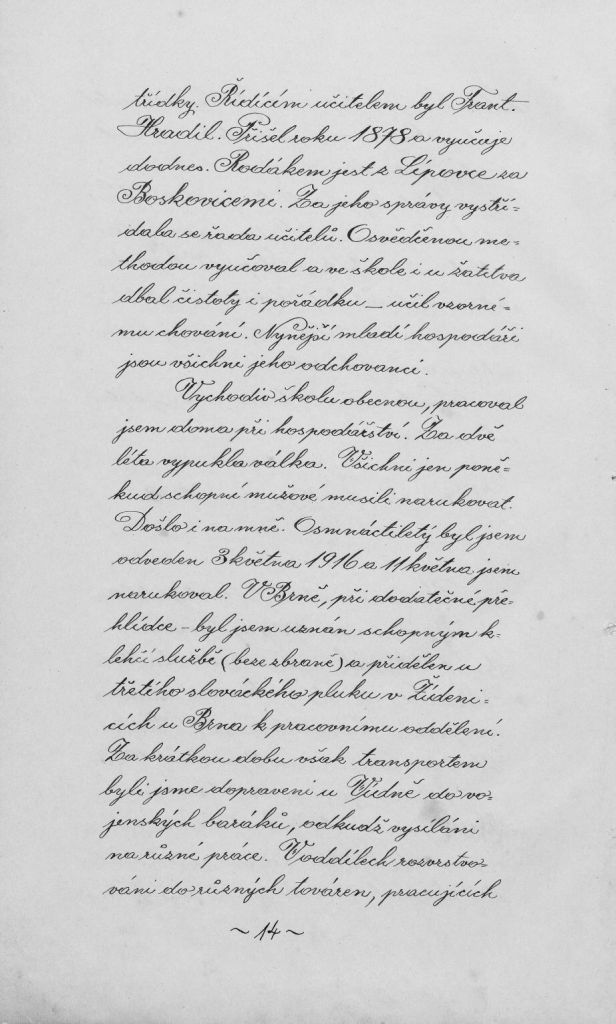 třídky. Řídícím učitelem byl Frant.
Hradil. Přišel roku 1878 a vyučuje
dodnes. Rodákem jest z Lipovce za
Boskovicemi. Za jeho správy vystří-
dala se řada učitelů. Osvědčenou me-
thodou vyučoval a ve škole i u žactva
dbal čistoty i pořádku – učil vzorné-
mu chování. Nynější mladí hospodáři
jsou všichni jeho odchovanci.
Vychodiv školu obecnou, pracoval
jsem doma při hospodářství. Za dvě
léta vypukla válka. Všichni jen poně-
kud schopní mužové musili narukovat.
Došlo i na mně. Osmnáctiletý byl jsem
odveden 3 května 1916 a 11 května jsem
narukoval. V Brně, při dodatečné pře-
hlídce – byl jsem uznán schopným k
lehčí službě (beze zbraně) a přidělen u
třetího slováckého pluku v Žideni-
cích u Brna k pracovnímu oddělení.
Za krátkou dobu však transportem
byli jsme dopraveni u Vídně do vo-
jenských baráků, odkudž vysíláni
na různé práce. V oddílech rozvrstvo-
váni do různých továren, pracujících
~ 14 ~